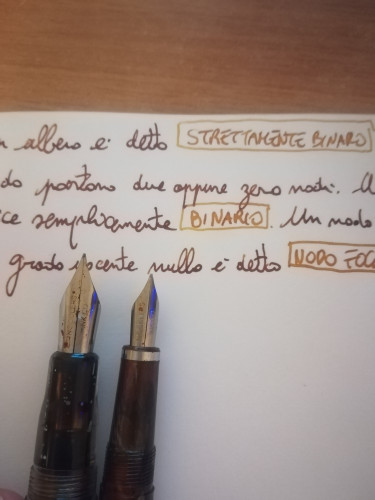 albero è detto STRETTAMENTE BINARIO
do partono due oppure zero nodi. U
ice semplicemente BINARIO. Un nodo
grado uscente nullo è detto NODO FOGL